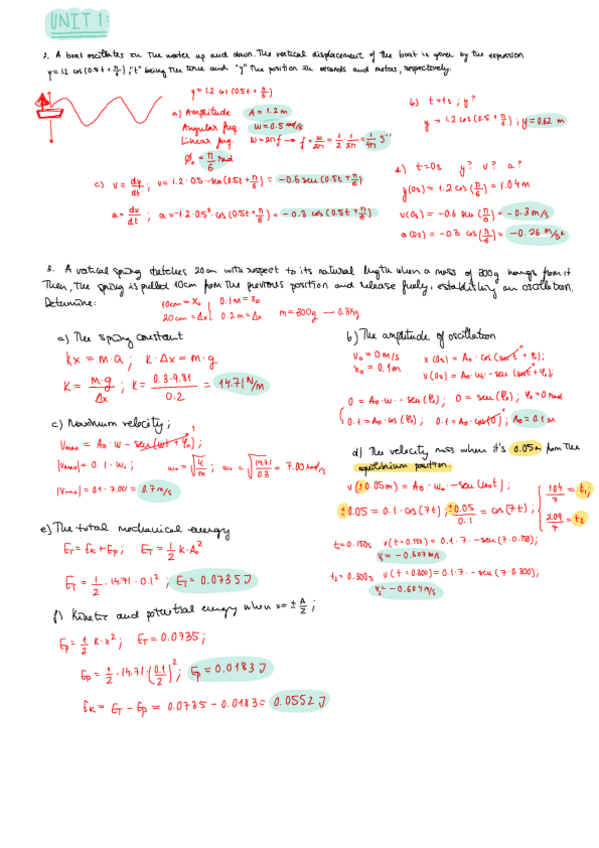 UNIT 1:
2. A boat oscillates in the water up and down. The vertical displacement of the boat is given by the expression
y=1.2 cos (0.5t + π/6); "t" being the time and "y" the position in seconds and metres, respectively.
y = 1.2 cos (0.5t + π/6)
a) Amplitude A = 1.2 m
Angular freq. ω = 0.5 rad/s
Linear freq. ω = 2πf → f = ω/2π = 1/2 · 1/2π = 1/4π s⁻¹
ϕ₀ = π/6 rad
b) t=1s ; y?
y = 1.2 cos (0.5 + π/6) ; y = 0.62 m
c) v = dy/dt ; v = 1.2 · 0.5 · -sen (0.5t + π/6) = -0.6 sen (0.5t + π/6)
a = dv/dt ; a = -1.2 · 0.5² · cos (0.5t + π/6) = -0.3 cos (0.5t + π/6)
d) t=0s y? v? a?
y(0s) = 1.2 cos (π/6) = 1.04 m
v(0s) = -0.6 sen (π/6) = -0.3 m/s
a(0s) = -0.3 cos (π/6) = -0.26 m/s²
3. A vertical spring stretches 20cm with respect to its natural length when a mass of 300g hangs from it
Then, the spring is pulled 10cm from the previous position and release freely, establishing an oscillation.
Determine:
10cm = x₀ 0.1m = x₀
20cm = Δx 0.2m = Δx
m = 300g → 0.3kg
a) The spring constant
kx = m·a ; k·Δx = m·g
k = m·g/Δx ; k = 0.3·9.81/0.2 = 14.71 N/m
b) The amplitude of oscillation
v₀ = 0 m/s x(0s) = A₀ · cos (ω₀t + φ₀);
x₀ = 0.1m v(0s) = A₀ · ω · -sen (ω₀t + φ₀)
0 = A₀ · ω · -sen (φ₀) ; 0 = sen (φ₀) ; φ₀ = 0 rad
0.1 = A₀ · cos (φ₀) ; 0.1 = A₀ · cos(0) ; A₀ = 0.1 m
c) Maximum velocity ;
Vmax = A₀ · ω · -sen (ωt + φ₀) ; 1
|Vmax| = 0.1 · ω₀ ; ω₀ = √k/m ; ω₀ = √14.71/0.3 = 7.00 rad/s
|Vmax| = 0.1 · 7.00 = 0.7 m/s
d) The velocity mass when it's 0.05m from the
equilibrium position.
v(±0.05m) = A₀ · ω₀ · -sen (ω₀t) ;
±0.05 = 0.1 · cos (7t) ; ±0.05/0.1 = cos (7t) ;
1.04/7 = t₁ ;
2.09/7 = t₂
t₁ = 0.150s v(t=0.150) = 0.1 · 7 · -sen (7 · 0.150) ;
v₁ = -0.607 m/s
t₂ = 0.300s v(t=0.300) = 0.1 · 7 · -sen (7 · 0.300) ;
v₂ = -0.604 m/s
e) The total mechanical energy
ET = Ek + Ep ; ET = 1/2 k·A₀²
ET = 1/2 · 14.71 · 0.1² ; ET = 0.0735 J
f) Kinetic and potential energy when x = ± A/2 ;
Ep = 1/2 k·x² ; ET = 0.0735 ;
Ep = 1/2 · 14.71 · (0.1/2)² ; Ep = 0.0183 J
Ek = ET - Ep = 0.0735 - 0.0183 = 0.0552 J